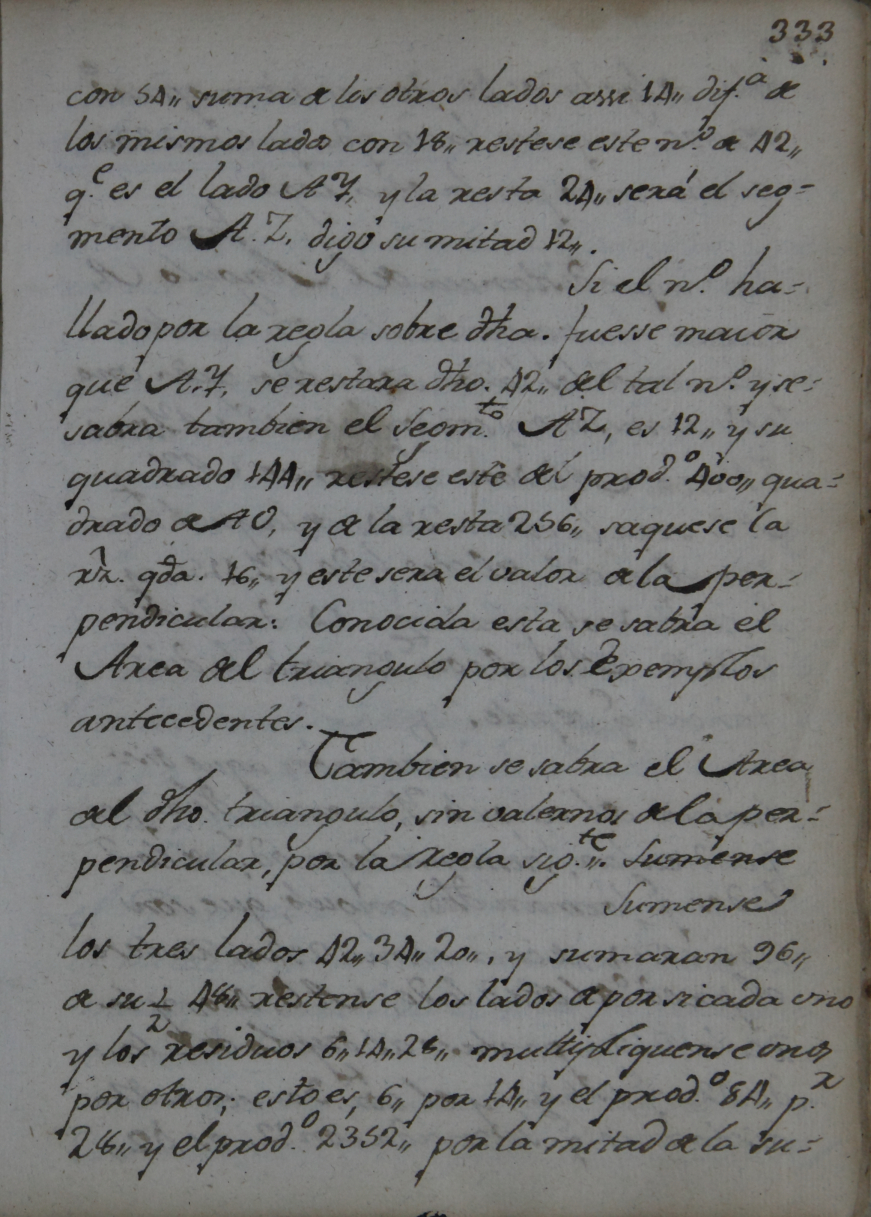 333
con 54,, suma de los otros lados assi 14,, dif.ª de
los mismos lados con 18,, restese este n.º de 42,,
q.e es el lado A Y, y la resta 24,, será el seg=
mento A. Z. digo su mitad 12,,.
Si el n.º ha=
llado por la regla sobre dha. fuesse maior
que A.Y. se restara dho. 42,, del tal n.º y se=
sabra tambien el Segm.to AZ, es 12,, y su
quadrado 144,, restese este del prod.º 400,, qua=
drado de AO, y de la resta 256,, saquese la
rz. qda. 16,, y este sera el valor de la per=
pendicular: Conocida esta se sabra el
Area del triangulo por los Exemplos
antecedentes.
Tambien se sabra el Area
del dho. triangulo, sin valernos de la per=
pendicular, por la regla sig.te,,. Sumense
Sumense
los tres lados 42,, 34,, 20,,, y sumaran 96,,
de su 1/2 48,, restense los lados de por si cada uno
y los residuos 6,, 14,, 28,, multipliquense unos
por otros; esto es, 6,, por 14,, y el prod.º 84,, p.r
28,, y el prod.º 2352,, por la mitad de la su=